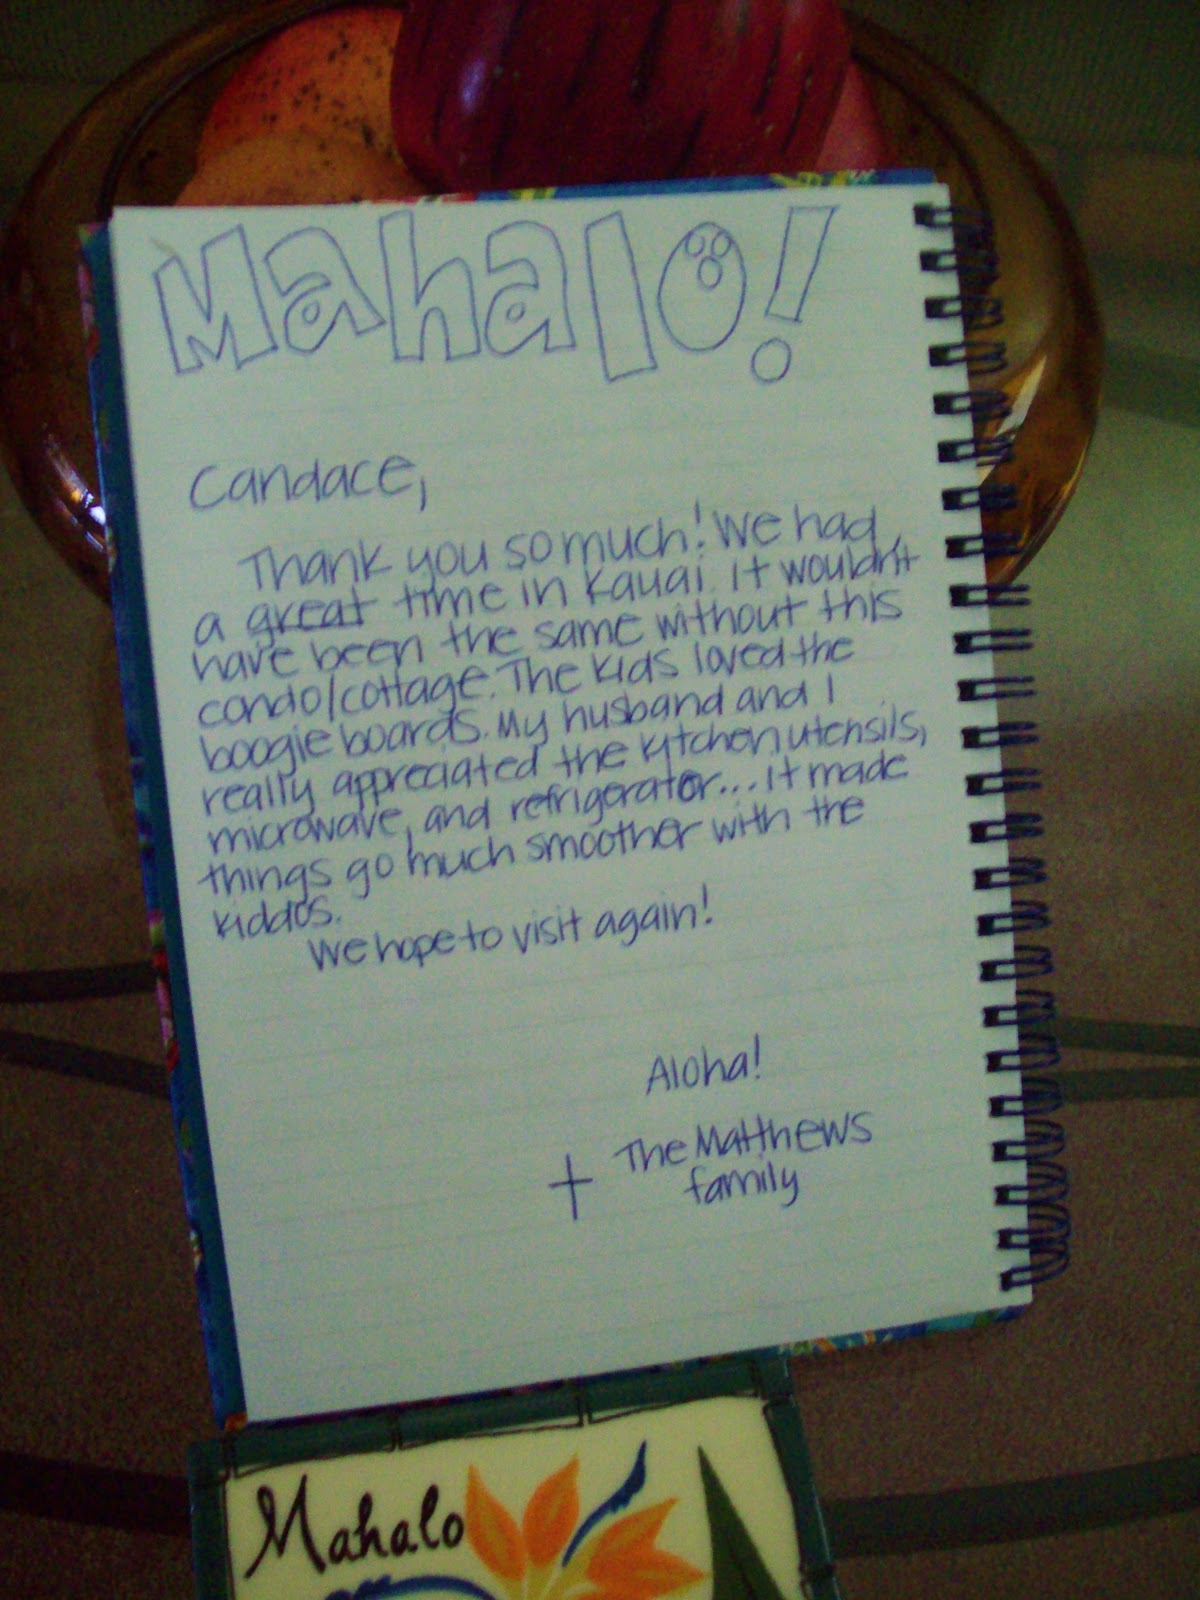 Mahalo!
Candace,
Thank you so much! We had
a great time in Kauai. It wouldn't
have been the same without this
condo/cottage. The kids loved the
boogie boards. My husband and I
really appreciated the kitchen utensils,
microwave, and refrigerator... it made
things go much smoother with the
kiddos.
We hope to visit again!
Aloha!
The Matthews
family
Mahalo